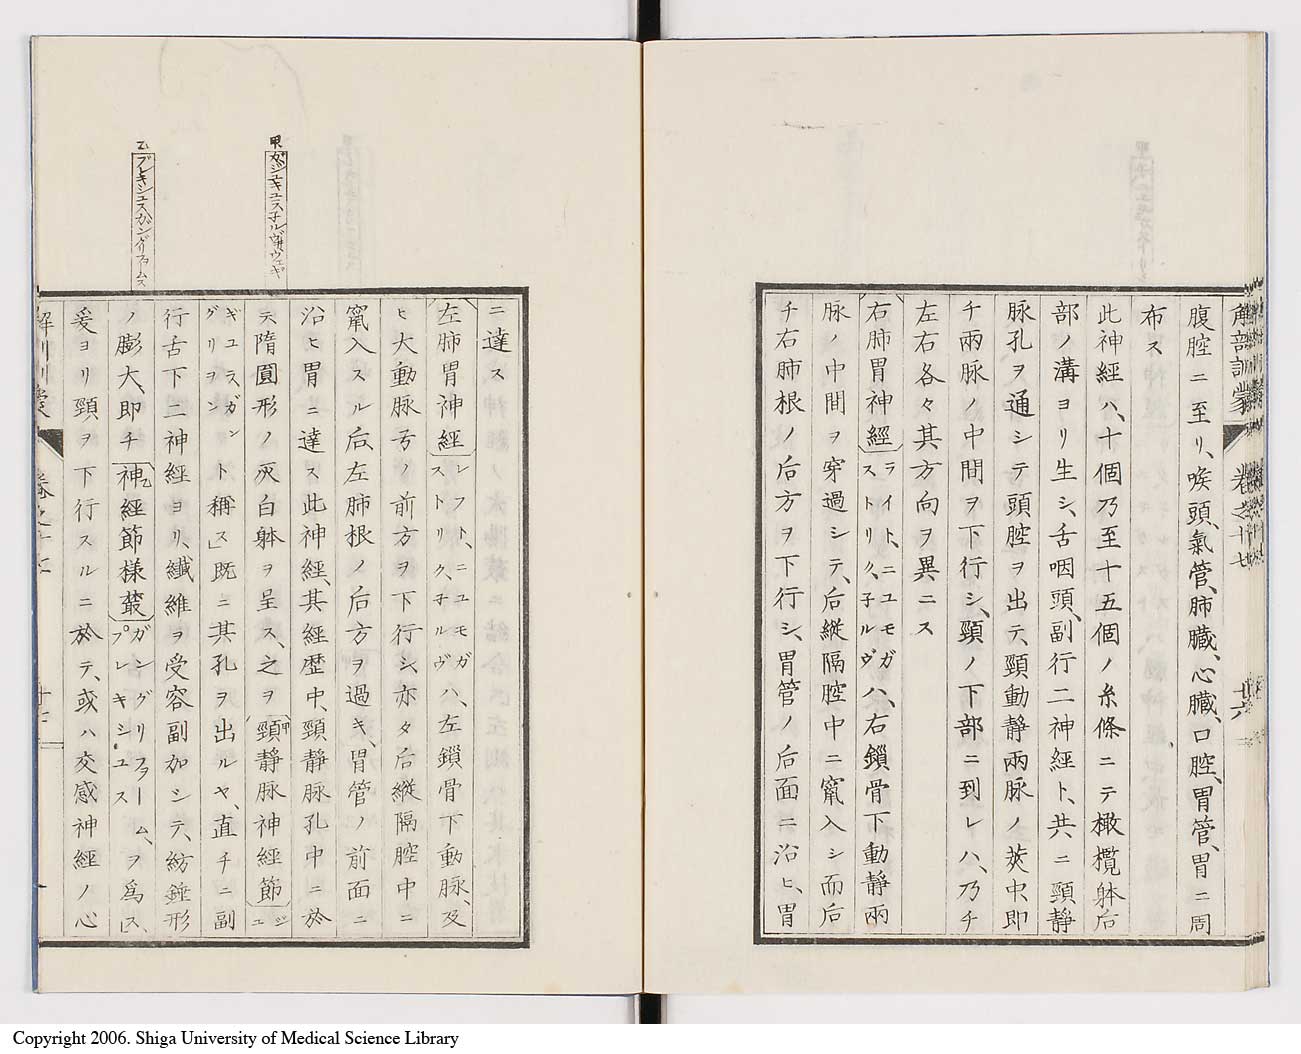 解剖訓蒙 巻之十七 廿六
腹腔ニ至リ、喉頭、氣管、肺臓、心臓、口腔、胃管、胃ニ周
布ス
此神経ハ、十個乃至十五個ノ糸條ニテ橄欖躰后
部ノ溝ヨリ生シ、舌咽頭、副行二神経ト、共ニ頸静
脉孔ヲ通シテ頭腔ヲ出テ、頸動静兩脉ノ莢中、即
チ兩脉ノ中間ヲ下行シ、頸ノ下部ニ到レハ、乃チ
左右各々其方向ヲ異ニス
右肺胃神經ライト、ニユモガストリク、子ルヴハ、右鎖骨下動静兩
脉ノ中間ヲ穿過シテ、后縦隔腔中ニ竄入シ而后
チ右肺根ノ后方ヲ下行シ、胃管ノ后面ニ沿ヒ、胃
ニ達ス
左肺胃神經レフト、ニユモガストリク、子ルヴハ、左鎖骨下動脉、及
ヒ大動脉弓ノ前方ヲ下行シ、亦タ后縦隔腔中ニ
竄入スル后、左肺根ノ后方ヲ過キ、胃管ノ前面ニ
沿ヒ胃ニ達ス此神経、其経歴中、頸静脉孔中ニ於
テ隋圓形ノ灰白躰ヲ呈ス、之ヲ甲頸静脉神経節ジユ
ギユラ、ガングリヲント稱ス」既ニ其孔ヲ出ルヤ、直チニ副
行舌下二神経ヨリ、纖維ヲ受容副加シテ、紡錘形
ノ膨大、即チ乙神経節様叢ガングリファーム、プレキシユスヲ爲ス、
爰ヨリ頸ヲ下行スルニ於テ、或ハ交感神経ノ心
甲
乙 プレキシュスガングリファームス